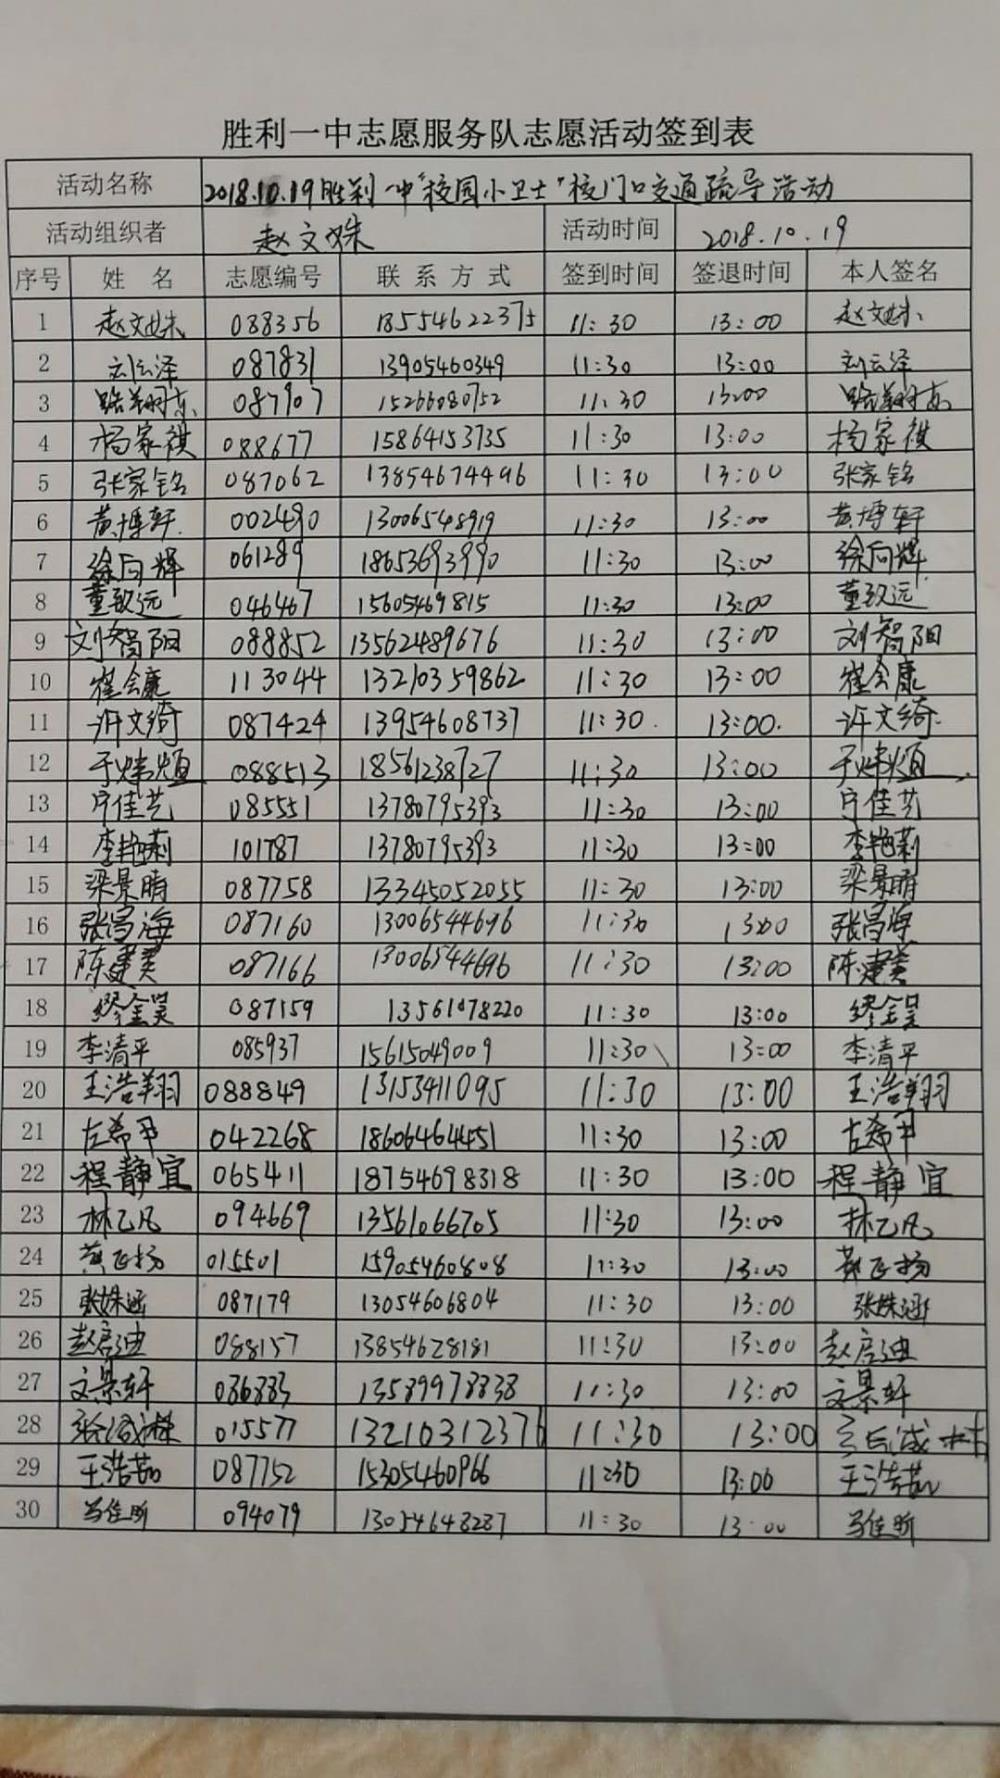 胜利一中志愿服务队志愿活动签到表
活动名称 2018.10.19胜利一中"校园小卫士"校门口交通疏导活动
活动组织者 赵文姝 活动时间 2018.10.19
序号 姓名 志愿编号 联系方式 签到时间 签退时间 本人签名
1 赵文姝 088356 18554622375 11:30 13:00 赵文姝
2 刘云泽 087831 13905460349 11:30 13:00 刘云泽
3 路翔东 087907 15266080752 11:30 13:00 路翔东
4 杨家祺 088677 15864153735 11:30 13:00 杨家祺
5 张家铭 087062 13854674496 11:30 13:00 张家铭
6 黄博轩 002490 13006548919 11:30 13:00 黄博轩
7 徐向辉 061289 18653693990 11:30 13:00 徐向辉
8 董致远 046467 15605469815 11:30 13:00 董致远
9 刘智阳 088852 13562489676 11:30 13:00 刘智阳
10 崔会康 113044 13210359862 11:30 13:00 崔会康
11 许文绮 087424 13954608737 11:30 13:00 许文绮
12 于炜烜 088513 18561238727 11:30 13:00 于炜烜
13 宁佳艺 085551 13780795393 11:30 13:00 宁佳艺
14 李艳莉 101787 13780795393 11:30 13:00 李艳莉
15 梁景晴 087758 13345052055 11:30 13:00 梁景晴
16 张富海 087160 13006544696 11:30 13:00 张富海
17 陈建美 087166 13006544696 11:30 13:00 陈建美
18 缪金昊 087159 13561078220 11:30 13:00 缪金昊
19 李清平 085937 15615049009 11:30 13:00 李清平
20 王浩翔 088849 13153411095 11:30 13:00 王浩翔
21 左希 042268 18606464451 11:30 13:00 左希
22 程静宜 065411 18754698318 11:30 13:00 程静宜
23 林乙凡 094669 13561066705 11:30 13:00 林乙凡
24 正扬 015501 15905460808 11:30 13:00 正扬
25 张姝涵 087179 13054606804 11:30 13:00 张姝涵
26 赵启迪 088157 13854628181 11:30 13:00 赵启迪
27 文景轩 086883 13589978838 11:30 13:00 文景轩
28 015577 13210312376 11:30 13:00
29 王浩茹 087752 15305460966 11:30 13:00 王浩茹
30 马佳昕 094079 13054648287 11:30 13:00 马佳昕